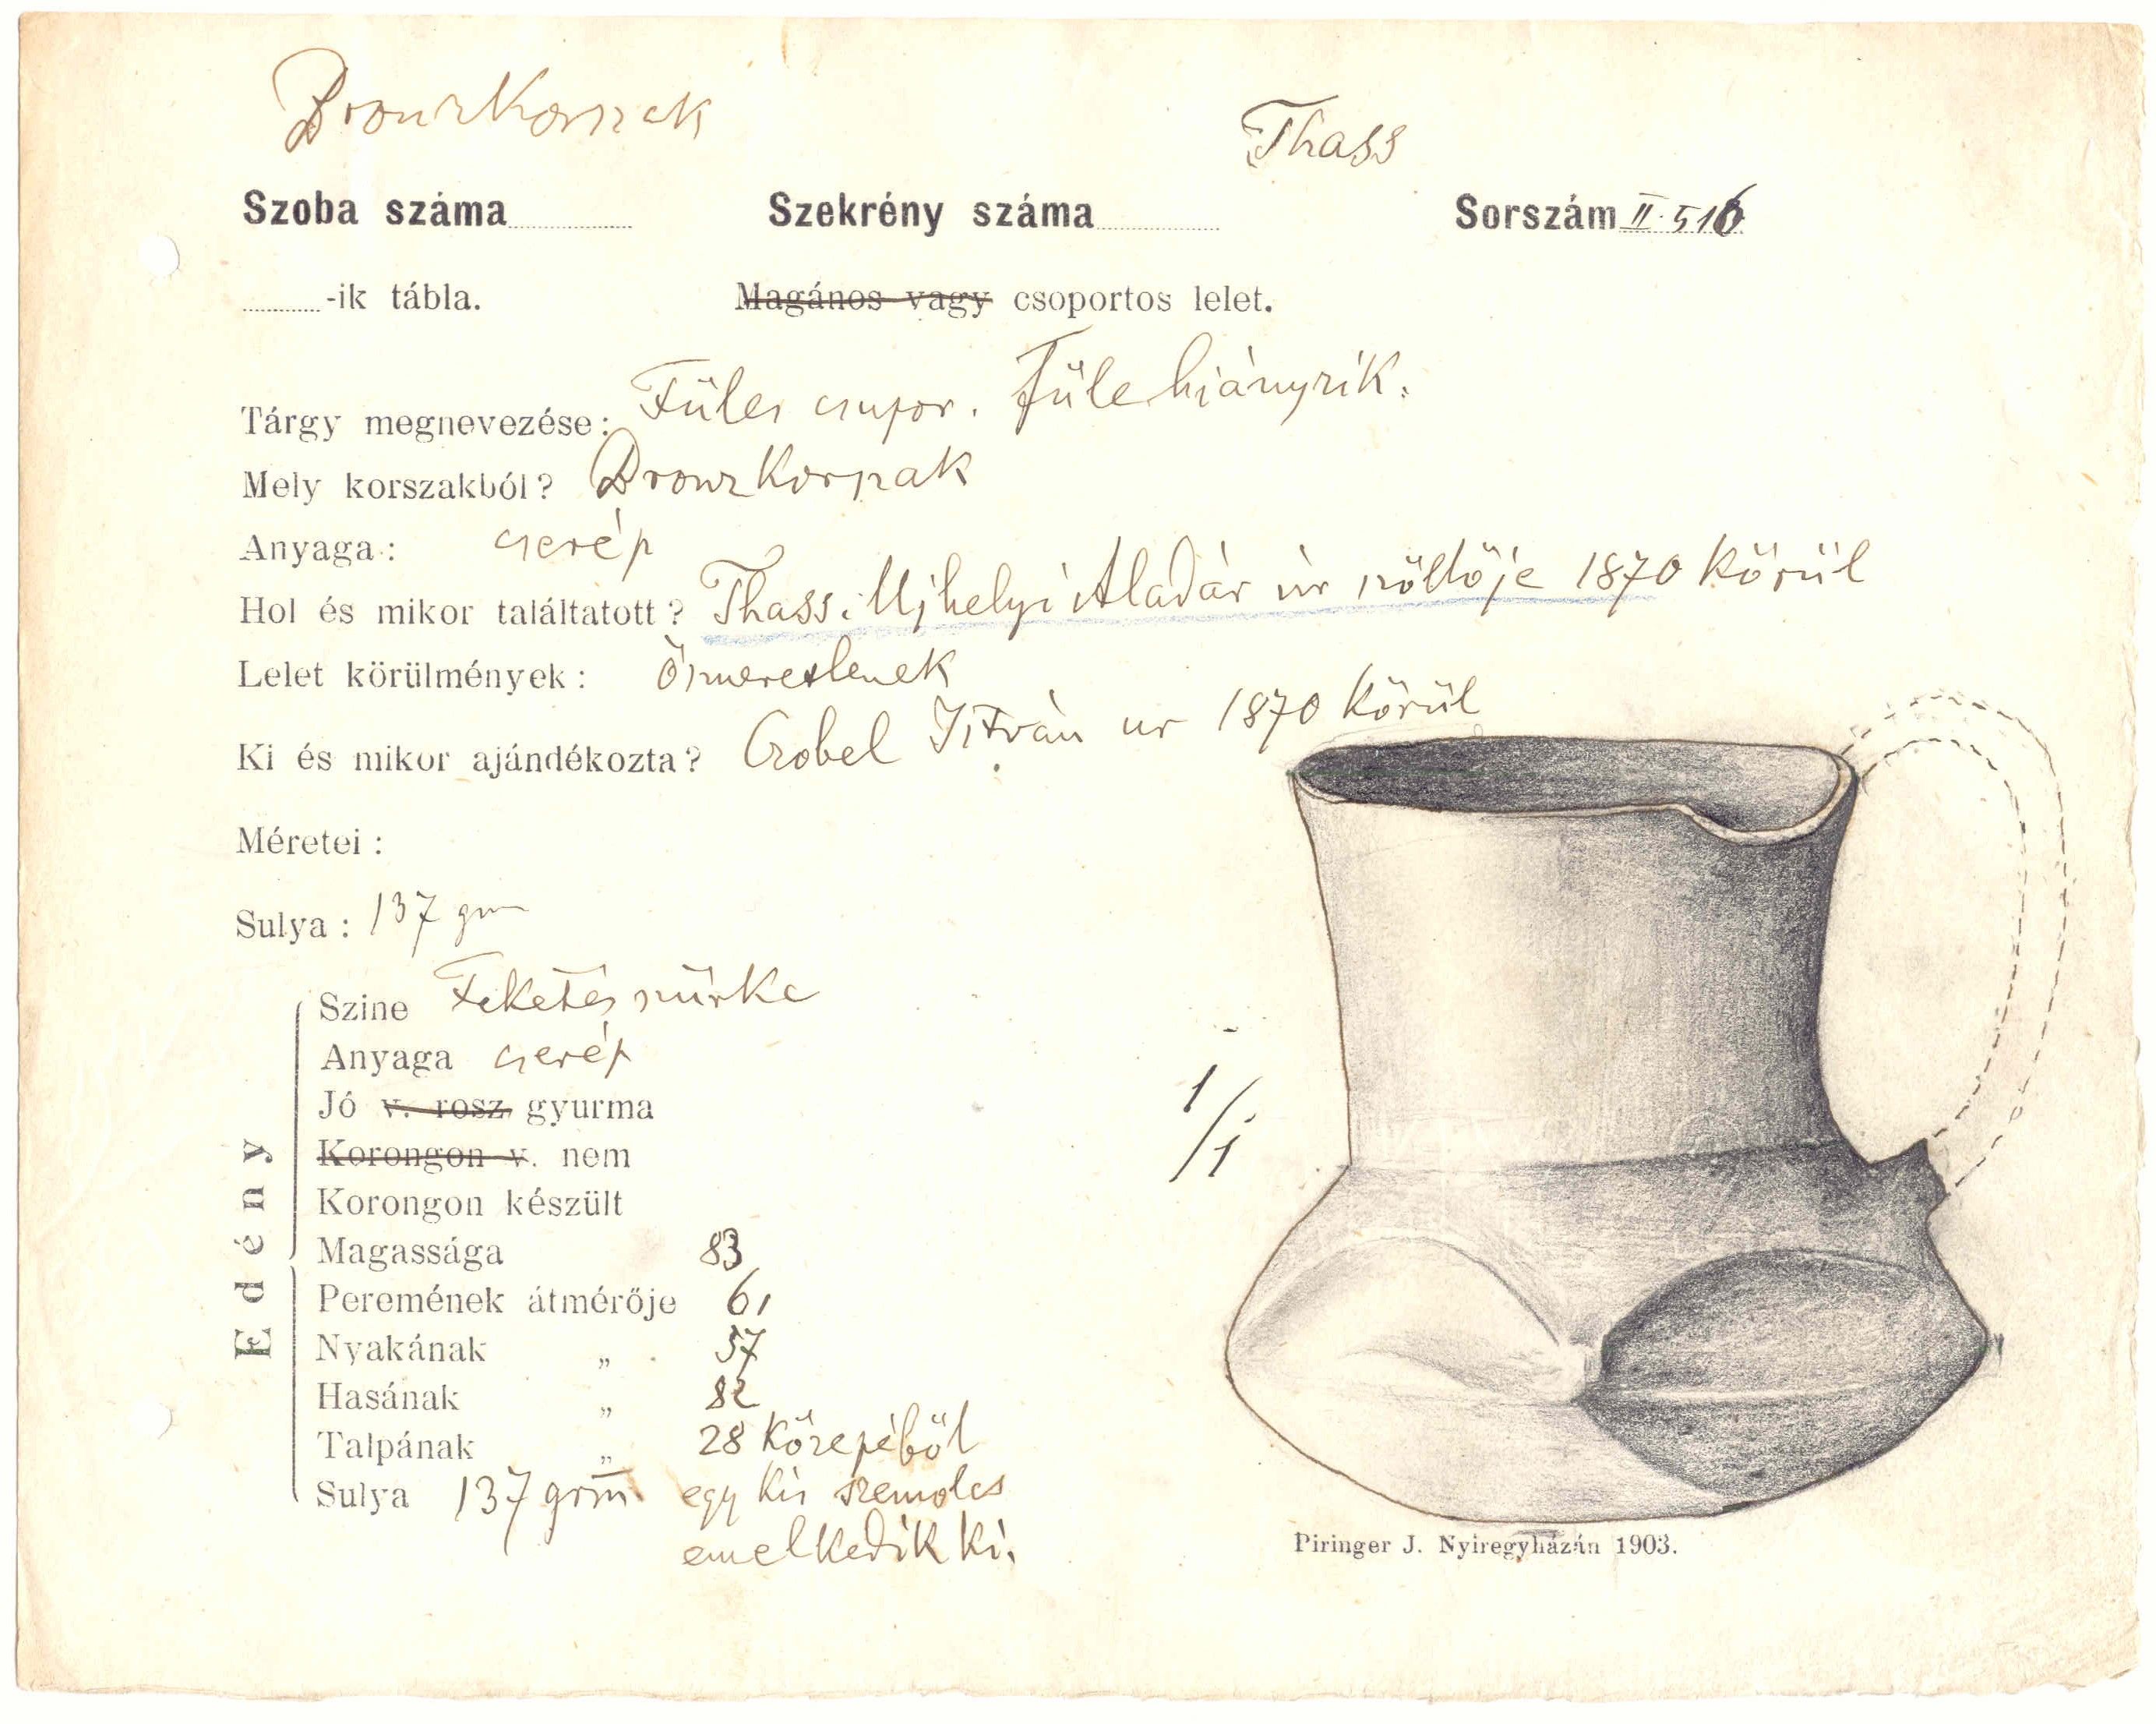 Bronzkorszak
Thass
Szoba száma Szekrény száma Sorszám II. 516
-ik tábla. Magános vagy csoportos lelet.
Tárgy megnevezése: Füles csupor. Füle hiányzik.
Mely korszakból? Bronzkorszak
Anyaga: cserép
Hol és mikor találtatott? Thass. Ujhelyi Aladár úr szőllője 1870 körül
Lelet körülmények: Ösmeretlenek
Ki és mikor ajándékozta? Czobel István ur 1870 körül
Méretei:
Sulya: 137 gm
Edény
Szine Feketés szürke
Anyaga cserép
Jó v. rosz gyurma
Korongon v. nem
Korongon készült
Magassága 83
Peremének átmérője 61
Nyakának „ 57
Hasának „ 82
Talpának „ 28 közepéből
Sulya 137 grm. egy kis szemölcs
emelkedik ki.
1/1
Piringer J. Nyiregyházán 1903.